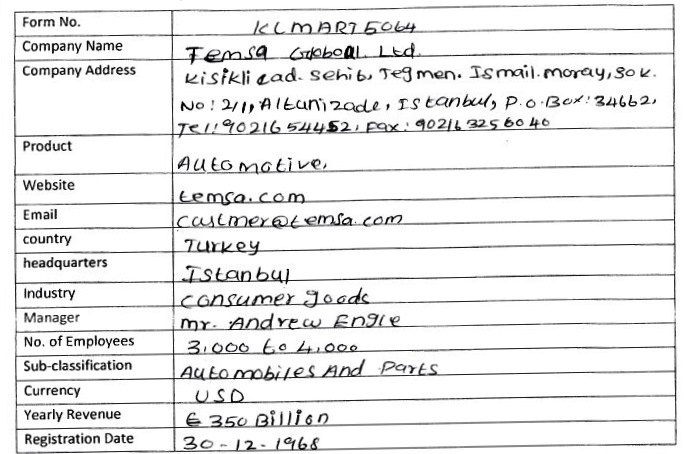 Form No. KLMART5064
Company Name Temsa Global Ltd.
Company Address Kisikli cad. Sehib, Tegmen. Ismail. moray, Sok.
No: 2/1, Altunizade, Istanbul, P.O.Box: 34662,
Tel: 9021654452, Fax: 902163256040
Product Automative,
Website temsa.com
Email custmer@temsa.com
country Turkey
headquarters Istanbul
Industry consumer goods
Manager mr. Andrew Engle
No. of Employees 3,000 to 4,000
Sub-classification Automobiles And Parts
Currency USD
Yearly Revenue € 350 Billion
Registration Date 30-12-1968